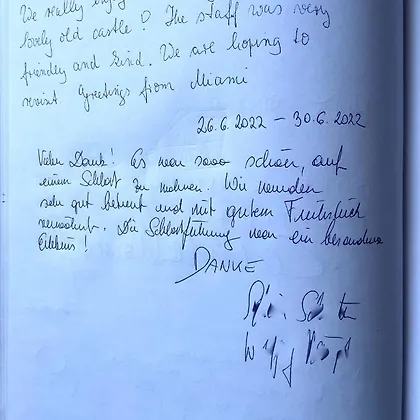 We really enjoy
lovely old castle! The staff was very
friendly and kind. We are hoping to
revisit greetings from Miami
26.6.2022 – 30.6.2022
Vielen Dank! Es war sooo schön, auf
einem Schloß zu wohnen. Wir wurden
sehr gut betreut und mit gutem Frühstück
verwöhnt. Die Schlossführung war ein besonderes
Erlebnis!
DANKE